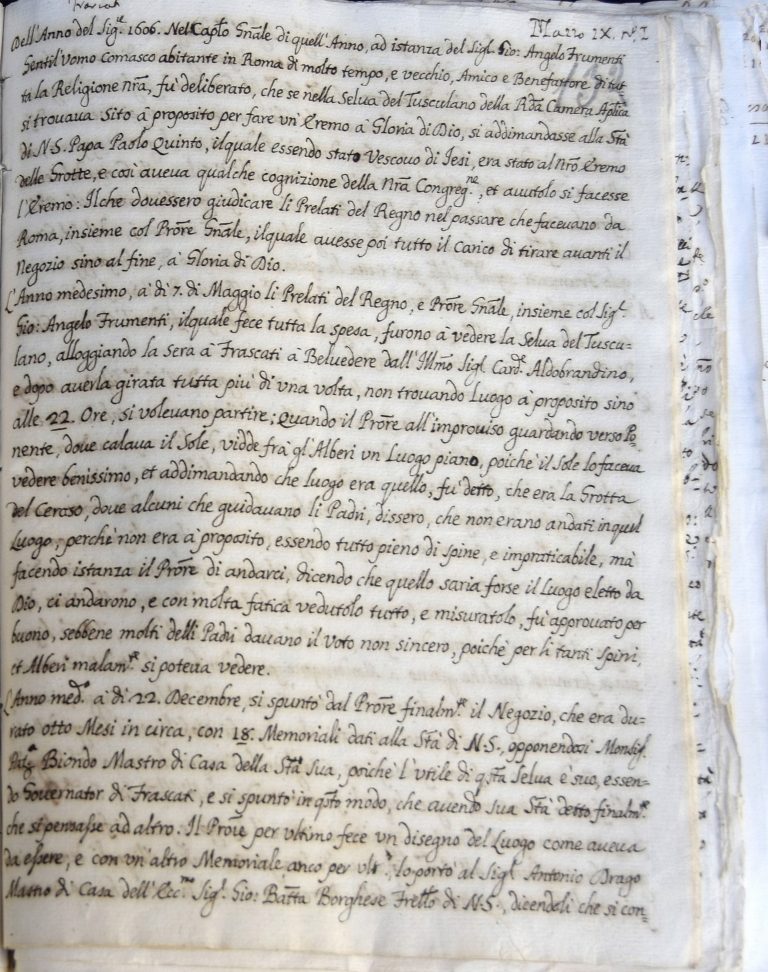 Frascati
Mazzo IX. N.º I
Dell'Anno del Sig.re 1606. Nel Cap.lo Gnãle di quell'Anno, ad istanza del Sig.l Gio: Angelo Frumenti
Gentil'Vomo Comasco abitante in Roma di molto tempo, e vecchio, Amico e Benefattore di tut=
ta la Religione nrã, fù deliberato, che se nella Selva del Tusculano della R.da Camera Aplica
si trovava Sito à proposito per fare un' Eremo à Gloria di Dio, si addimandasse alla Stà
di N. S. Papa Paolo Quinto, il quale essendo stato Vescovo di Iesi, era stato al Nrõ Eremo
delle Grotte, e così aveva qualche cognizione della Nrã Congreg.ne, et avutolo si facesse
l'Eremo: Il che dovessero giudicare li Prelati del Regno nel passare che facevano da
Roma, insieme col Prõre Gnãle, il quale avesse poi tutto il Carico di tirare avanti il
Negozio sino al fine, à Gloria di Dio.
L'Anno medesimo, à di 7. di Maggio li Prelati del Regno, e Prõre Gnãle, insieme col Sig.l
Gio: Angelo Frumenti, il quale fece tutta la spesa, furono à vedere la Selva del Tuscu=
lano, alloggiando la sera à Frascati à Belvedere dall'Illmõ Sig.l Card.e Aldobrandino,
e dopo averla girata tutta più di una volta, non trovando Luogo à proposito sino
alle 22. Ore, si volevano partire; Quando il Prõre all'improviso guardando verso Po=
nente, dove calava il Sole, vidde frà gl'Alberi un Luogo piano, poichè il Sole lo faceva
vedere benissimo, et addimandando che luogo era quello, fù detto, che era la Grotta
del Ceraso, dove alcuni che guidavano li Padri, dissero, che non erano andati in quel
Luogo, perchè non era à proposito, essendo tutto pieno di spine, e impraticabile, mà
facendo istanza il Prõre di andarci, dicendo che quello saria forse il Luogo eletto da
Dio, ci andarono, e con molta fatica vedutolo tutto, e misuratolo, fù approvato per
buono, sebbene molti delli Padri davano il voto non sincero, poichè per li tanti spini,
et Alberi malam.te si poteva vedere.
L'Anno med.o à di 22. Decembre, si spuntò dal Prõre finalm.te il Negozio, che era du=
rato otto Mesi in circa, con 18: Memoriali dati alla Stà di N. S., opponendosi Monsig.l
Biondo Mastro di Casa della Stà Sua, poichè l'utile di qstã Selva è suo, essen=
do Governator di Frascati, e si spuntò in qstõ modo, che avendo sua Stà detto finalm.te
che si pensasse ad altro. Il Prõre per ultimo fece un disegno del Luogo come aveva
da essere, e con un'altro Memoriale anco per ult.o, lo portò al Sig.l Antonio Drago
Mastro di Casa dell'Ecc.mo Sig.l Gio: Battã Borghese Frello di N. S., dicendoli che si con=